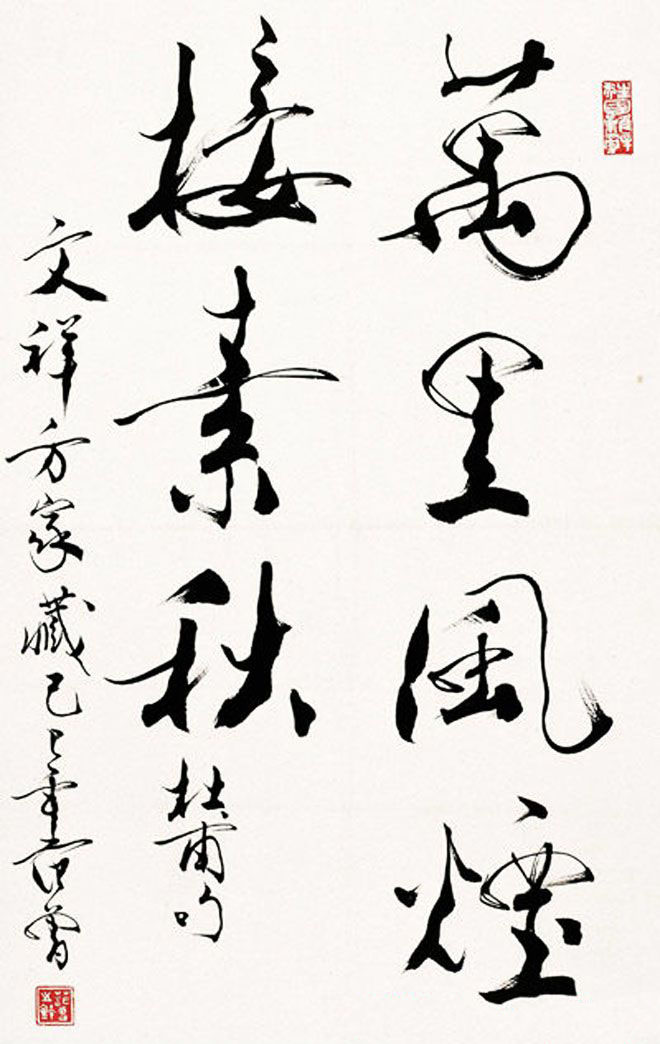 萬里風煙
接素秋 杜甫句
文祥方家藏 己 年 范曾